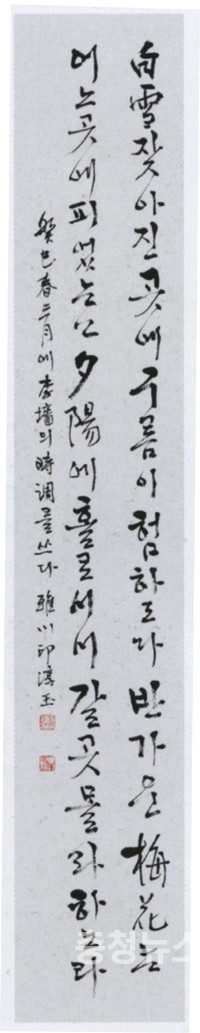 白雪 잦아진 곳에 구름이 험하도다 반가운 梅花는
어느 곳에 피였는고 夕陽에 홀로 서서 갈 곳 몰라 하노라
癸巳春三月에 李墻의 時調를 쓰다 雅川 印淳玉
충청뉴스